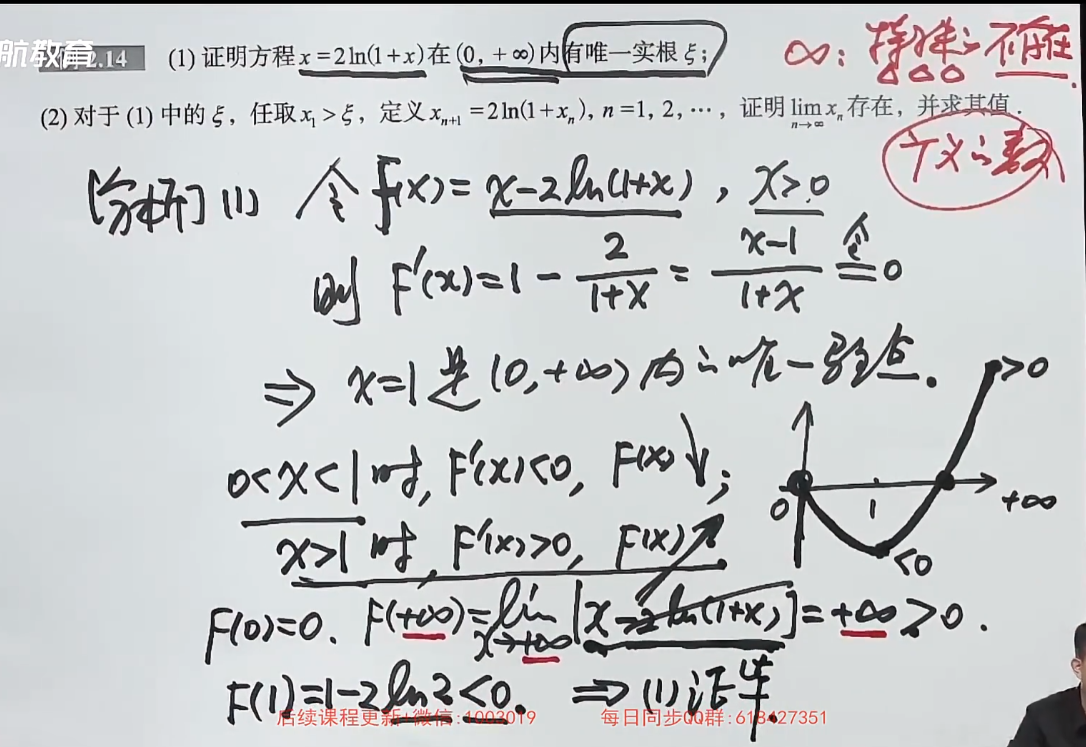 航教育
2.14 (1) 证明方程 x = 2ln(1+x) 在 (0, +∞) 内有唯一实根 ξ;
∞: 不存在.
(2) 对于 (1) 中的 ξ, 任取 x₁ > ξ, 定义 xₙ₊₁ = 2ln(1+xₙ), n = 1, 2, ⋯, 证明 lim xₙ 存在, 并求其值.
n→∞
广义的数
[分析] (1) 令 f(x) = x-2ln(1+x), x>0
则 F'(x) = 1 - 2/(1+x) = (x-1)/(1+x) 令= 0
⇒ x=1 是 (0,+∞) 内的唯一驻点.
>0
0<x<1 时, F'(x)<0, F(x)↓;
0 1 +∞
x>1 时, F'(x)>0, F(x)↗.
<0
F(0)=0. F(+∞)=lim [x-2ln(1+x)]=+∞>0.
x→+∞
F(1)=1-2ln2<0. ⇒ (1) 证毕.
后续课程更新+微信:1003019 每日同步QQ群:618427351